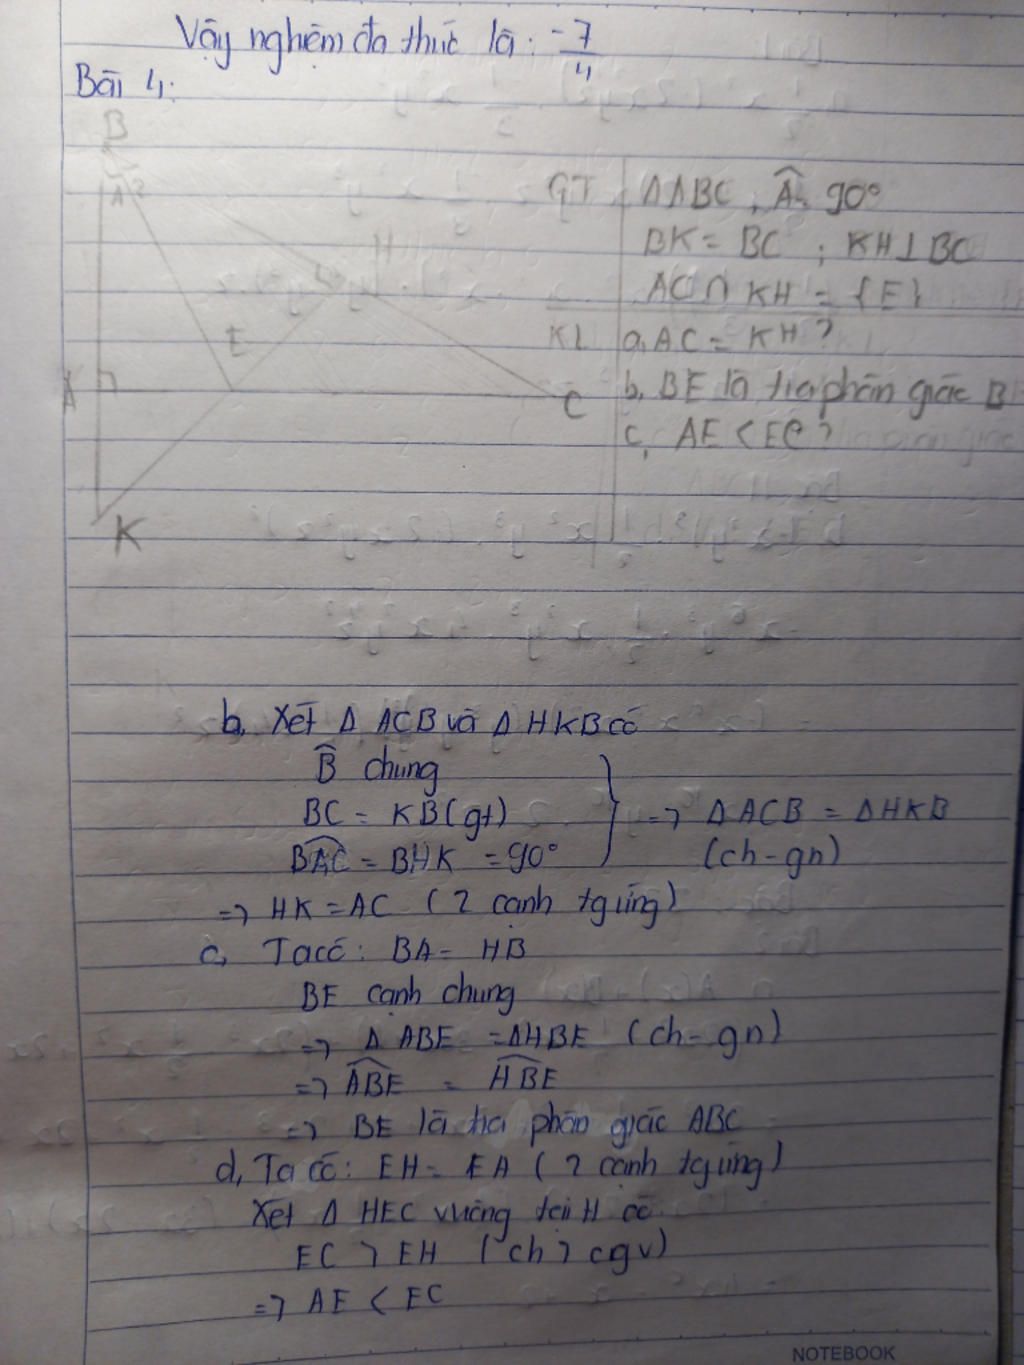 Vậy nghiệm đa thức là: -7/4
Bài 4:
B
1 2
H
E
A
C
K
GT ΔABC, Â = 90°
BK = BC ; KH ⊥ BC
AC ∩ KH = {E}
KL a, AC = KH ?
b, BE là tia phân giác B
c, AE < EC ?
b, Xét Δ ACB và Δ HKB có
B̂ chung
BC = KB (gt)
BAC = BHK = 90°
=> Δ ACB = Δ HKB
(ch-gn)
=> HK = AC (2 cạnh tg ứng)
c, Ta có: BA = HB
BE cạnh chung
=> Δ ABE = ΔHBE (ch-gn)
=> ABE = HBE
=> BE là tia phân giác ABC
d, Ta có: EH = EA (2 cạnh tg ứng)
Xét Δ HEC vuông tại H có
EC > EH (ch > cgv)
=> AE < EC
NOTEBOOK